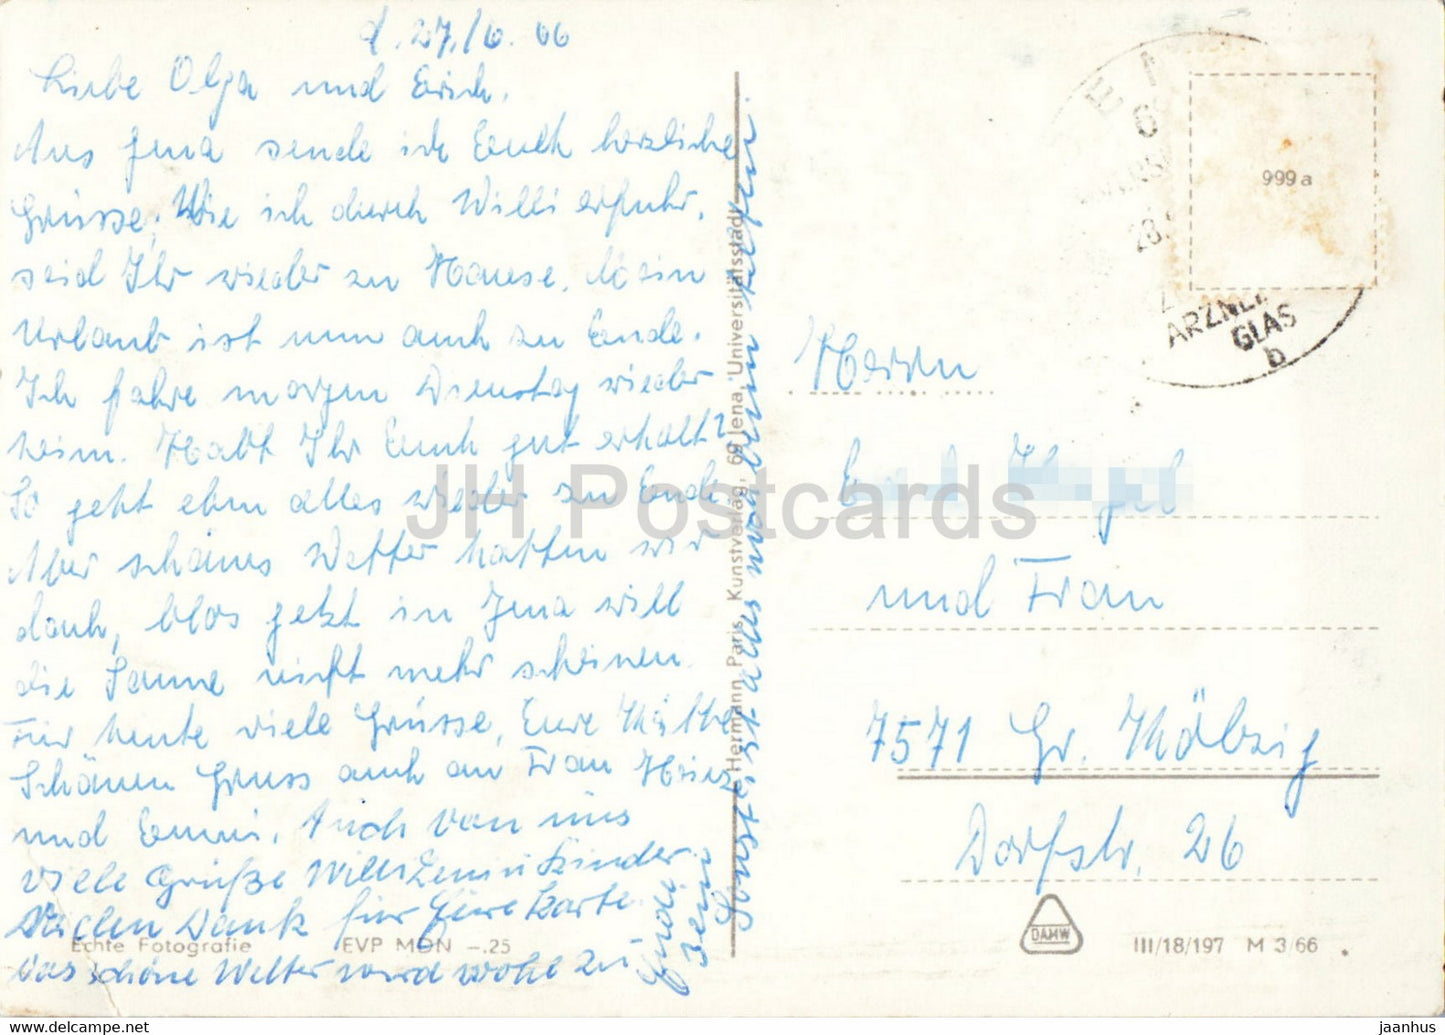 d. 27./6. 66
Liebe Olga und Erich.
Aus Jena sende ich Euch herzliche
Grüsse. Wie ich durch Willi erfuhr,
seid Ihr wieder zu Hause. Mein
Urlaub ist nun auch zu Ende.
Ich fahre morgen Dienstag wieder
heim. Habt Ihr Euch gut erholt?
So geht eben alles wieder zu Ende.
Aber schönes Wetter hatten wir
doch, blos jetzt in Jena will
die Sonne nicht mehr scheinen.
Für heute viele Grüsse, Eure
Schönen Gruss auch an Frau
und Emmi. Auch von uns
viele Grüße Willi u Kinder.
Vielen Dank für Eure Karte.
Das schöne Wetter wird wohl zu
Ende sein
Sonst ist alles noch beim Alten.
Echte Fotografie EVP MDN -.25
Hermann Paris, Kunstverlag, 69 Jena, Universitätsstadt
999 a
ARZNEI
GLAS
b
Herrn
und Frau
7571 Gr. Kölzig
Dorfstr. 26
DAMW
III/18/197 M 3/66
JH Postcards
www.delcampe.net
jaanhus